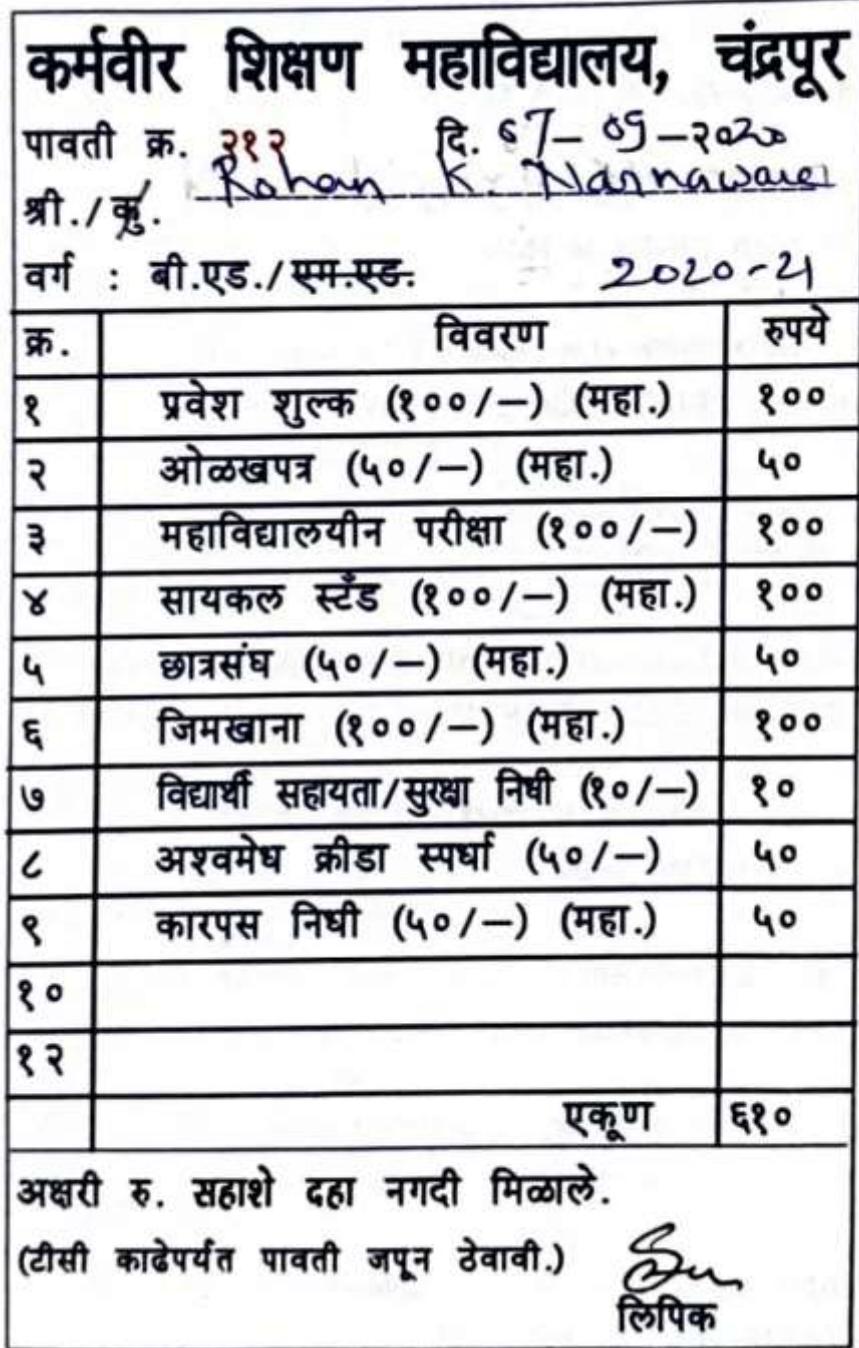 कर्मवीर शिक्षण महाविद्यालय, चंद्रपूर
पावती क्र. २१२ दि. 07-09-२०२०
श्री./कु. Rohan K. Nannaware
वर्ग : बी.एड./एम.एड. 2020-21
क्र. विवरण रुपये
१ प्रवेश शुल्क (१००/—) (महा.) १००
२ ओळखपत्र (५०/—) (महा.) ५०
३ महाविद्यालयीन परीक्षा (१००/—) १००
४ सायकल स्टँड (१००/—) (महा.) १००
५ छात्रसंघ (५०/—) (महा.) ५०
६ जिमखाना (१००/—) (महा.) १००
७ विद्यार्थी सहायता/सुरक्षा निधी (१०/—) १०
८ अश्वमेध क्रीडा स्पर्धा (५०/—) ५०
९ कारपस निधी (५०/—) (महा.) ५०
१०
१२
एकूण ६१०
अक्षरी रु. सहाशे दहा नगदी मिळाले.
(टीसी काढेपर्यंत पावती जपून ठेवावी.)
लिपिक